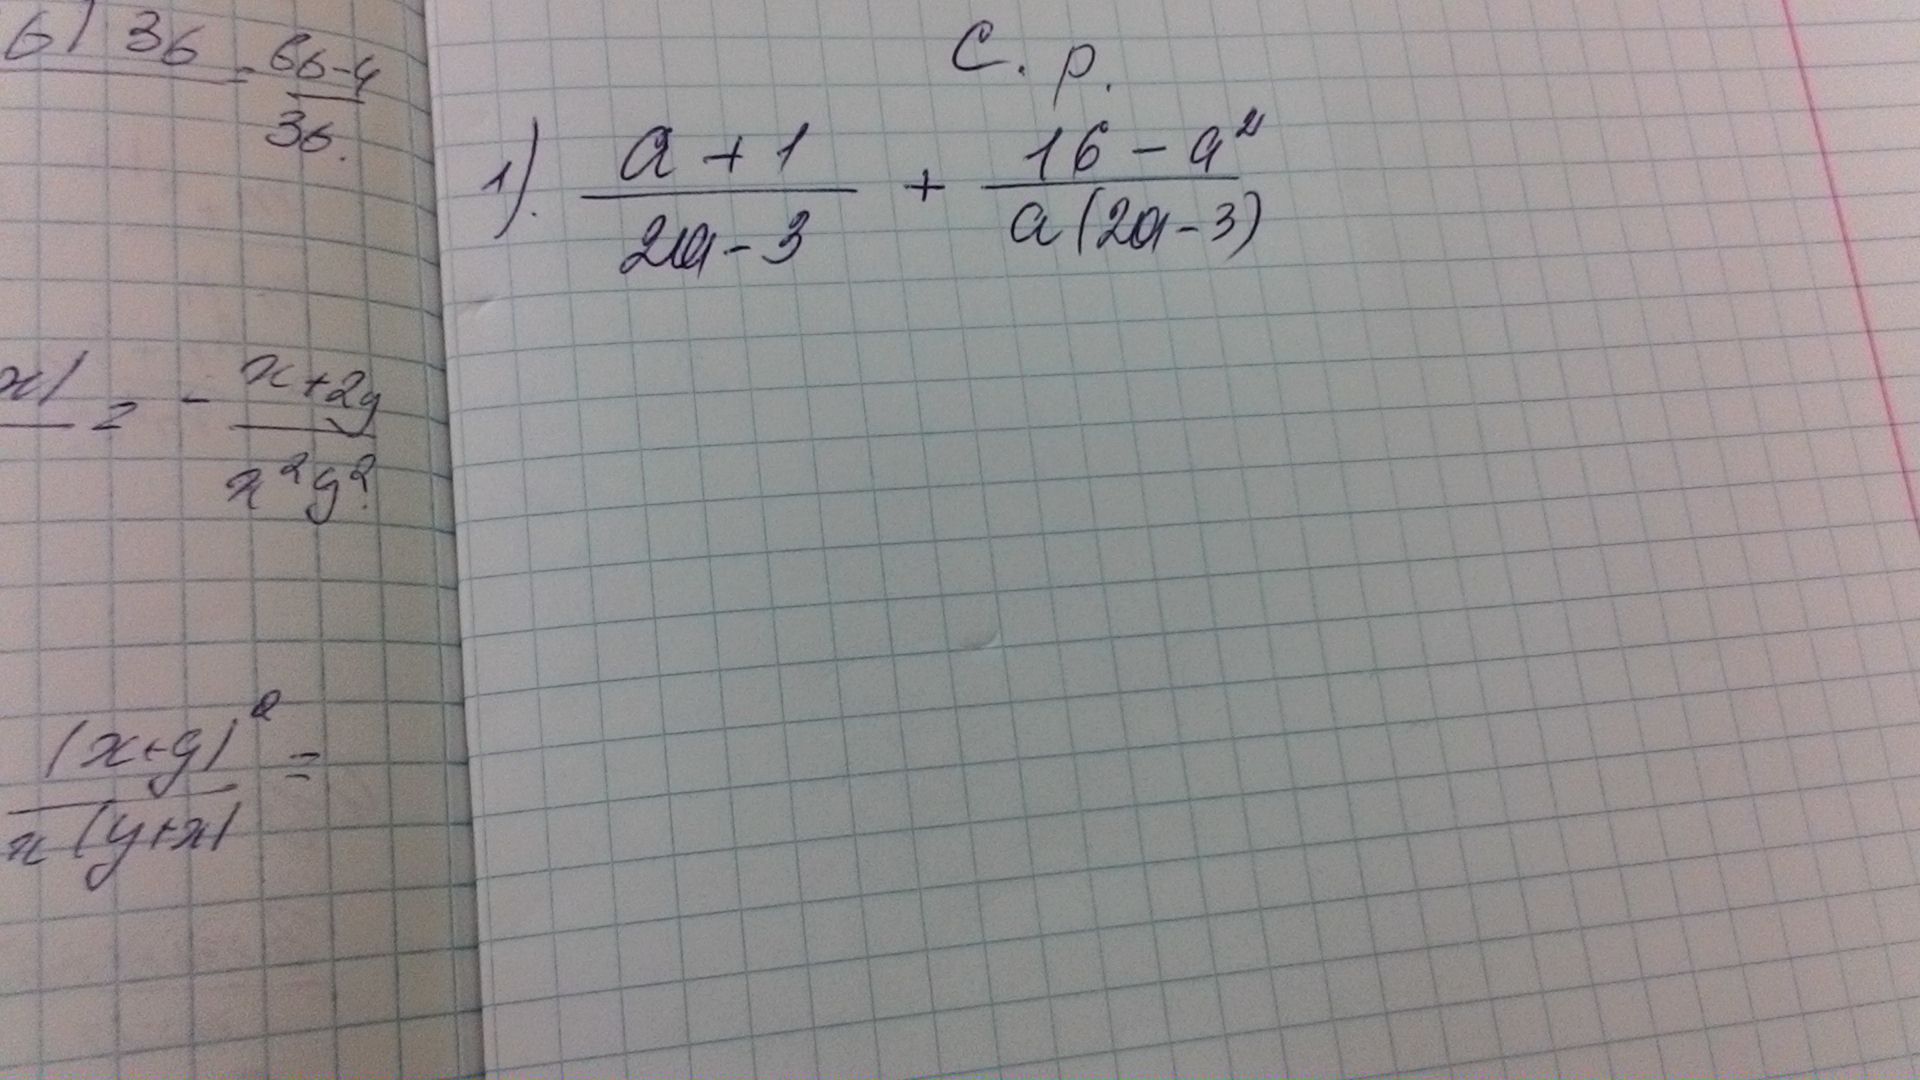 б) 3б = 6б-4 / 3б.
x) = - x+2y / x²y².
(x+y)² / x(y+x) =
С. р.
1). a+1 / 2a-3 + 16-a² / a(2a-3)